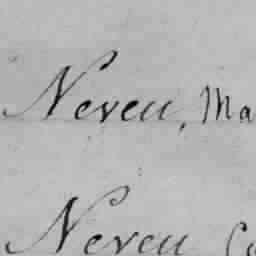 Neveu, Ma
Neveu